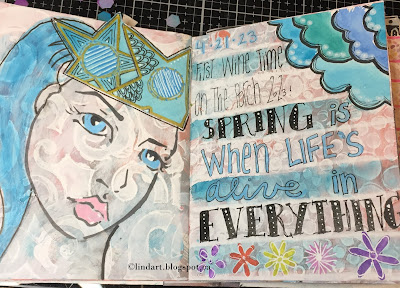 4-21-23
First Wine Time
On The Porch 2023!
SPRING is
When LIFE'S
alive in
EVERYTHING
©lindart.blogspot.ca